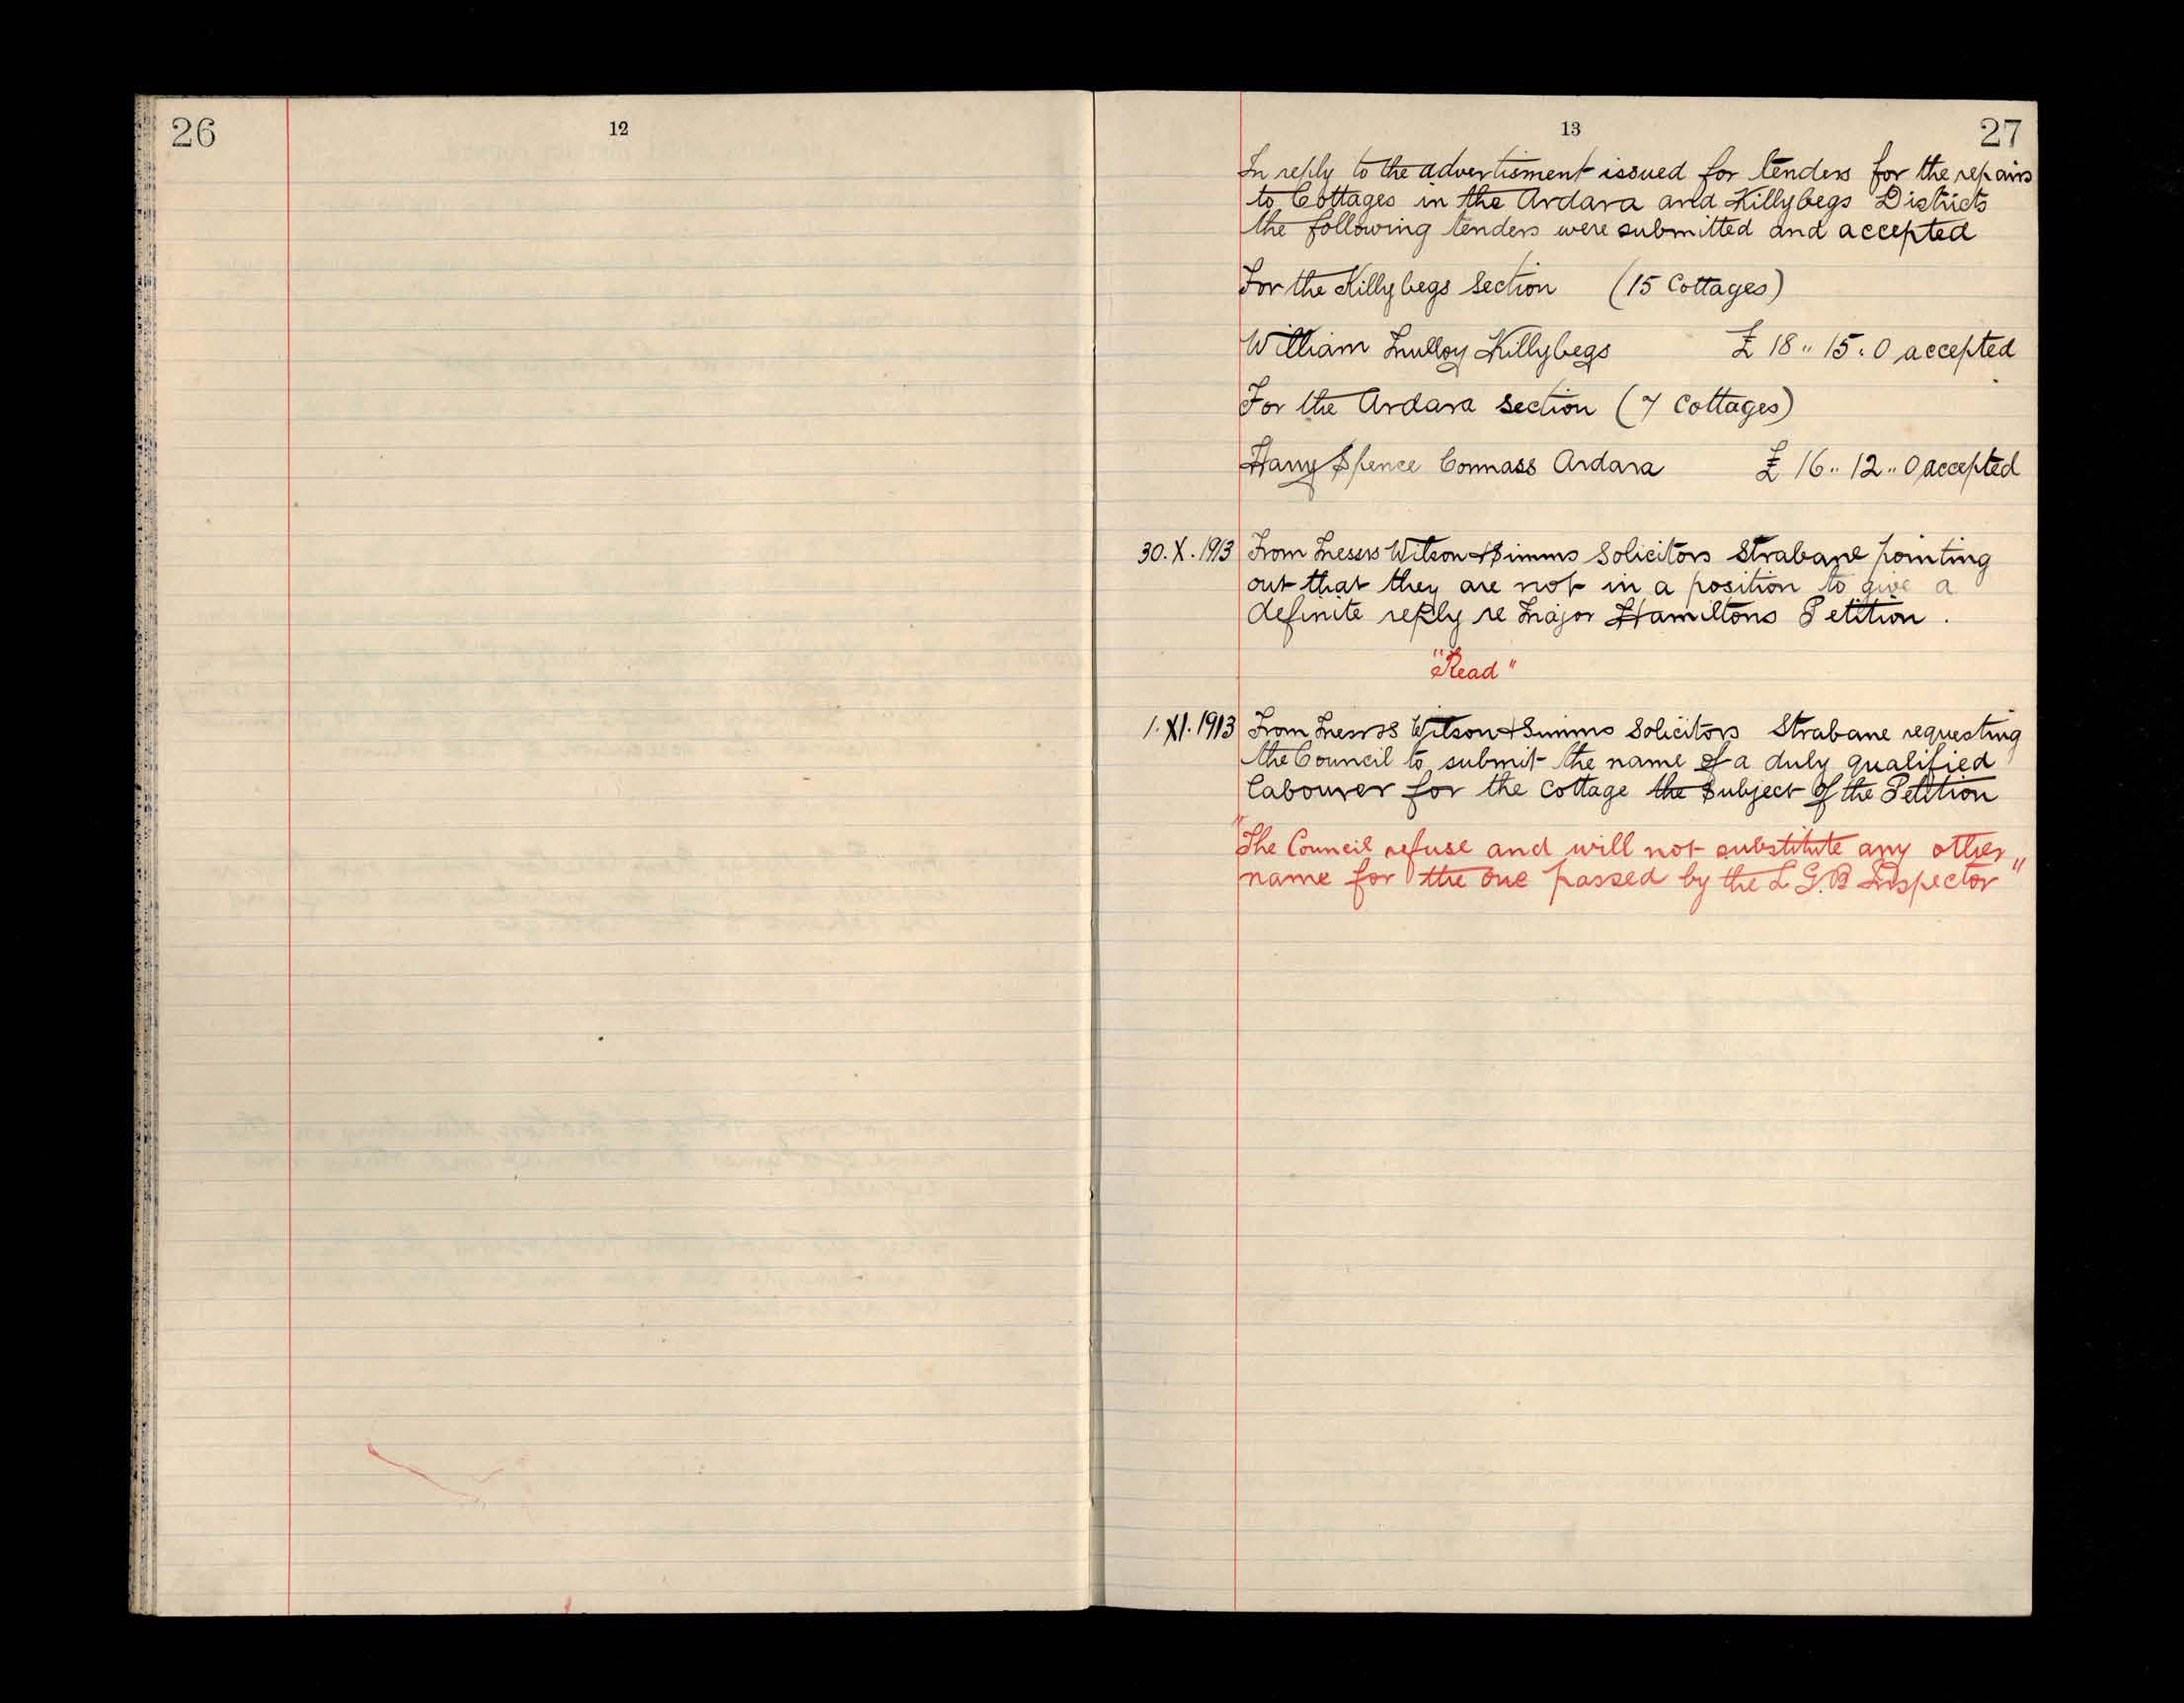 26
12
13
27
In reply to the advertisment issued for tenders for the repairs
to Cottages in the Ardara and Killybegs Districts
the following tenders were submitted and accepted
For the Killybegs Section (15 Cottages)
William Mulloy Killybegs £ 18 " 15 . 0 accepted
For the Ardara Section (7 Cottages)
Harry Spence Connass Ardara £ 16 .. 12 .. 0 accepted
30. X. 1913 From Messrs Wilson & Simms Solicitors Strabane pointing
out that they are not in a position to give a
definite reply re Major Hamiltons Petition .
"Read"
1. XI. 1913 From Messrs Wilson & Simms Solicitors Strabane requesting
the Council to submit the name of a duly qualified
labourer for the cottage the subject of the Petition
"The Council refuse and will not substitute any other
name for the one passed by the L G. B Inspector"